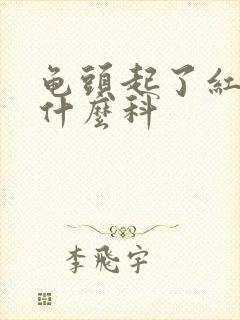 龟頭起了紅
什麼科
李飛宇